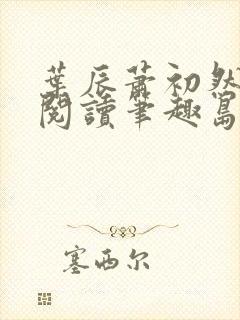 葉辰蕭初然
閱讀筆趣島
塞西尔